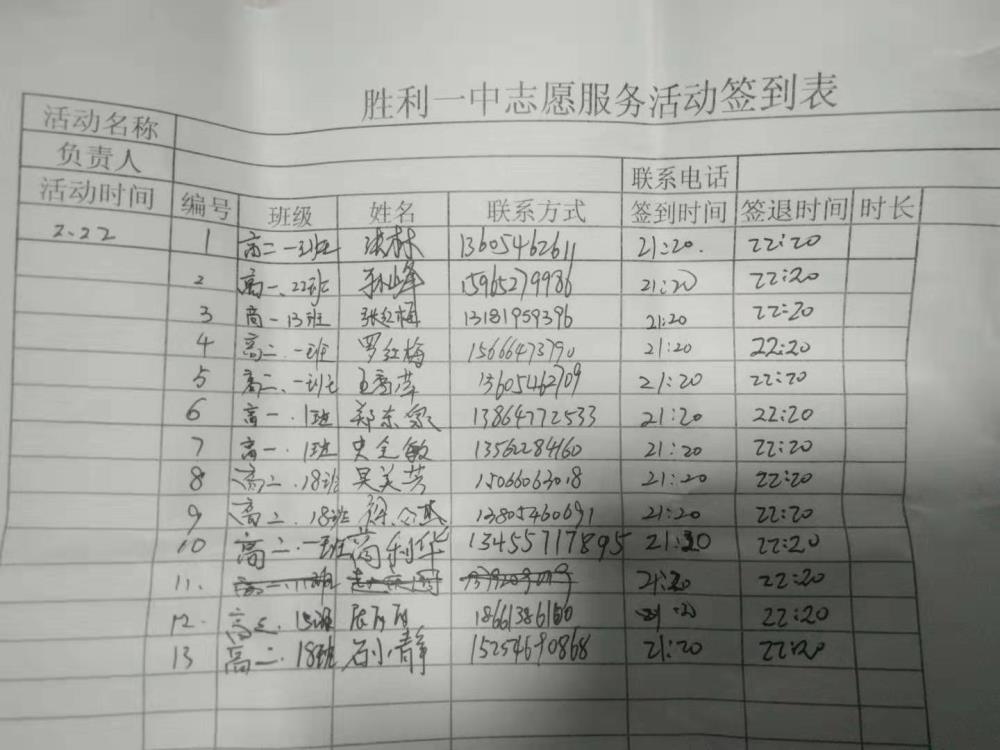 胜利一中志愿服务活动签到表
活动名称
负责人 联系电话
活动时间 编号 班级 姓名 联系方式 签到时间 签退时间 时长
2.22 1 高二一班 13605462611 21:20. 22:20
2 高一、22班 15965279986 21:20 22:20
3 高一13班 张红梅 13181959396 21:20 22:20
4 高二.一班 罗红梅 15666473790 21:20 22:20
5 高二、一班 王秀萍 13605462709 21:20 22:20
6 高一.1班 郑东 13864772533 21:20 22:20
7 高一.1班 史全敏 13562284160 21:20 22:20
8 高二.18班 吴美芳 15066063018 21:20 22:20
9 高二.18班 13805460691 21:20 22:20
10 高二.一班 利华 13455717895 21:20 22:20
11. 21:20 22:20
12. 22:20
13 高二.18班 石小静 15254690868 21:20 22:20